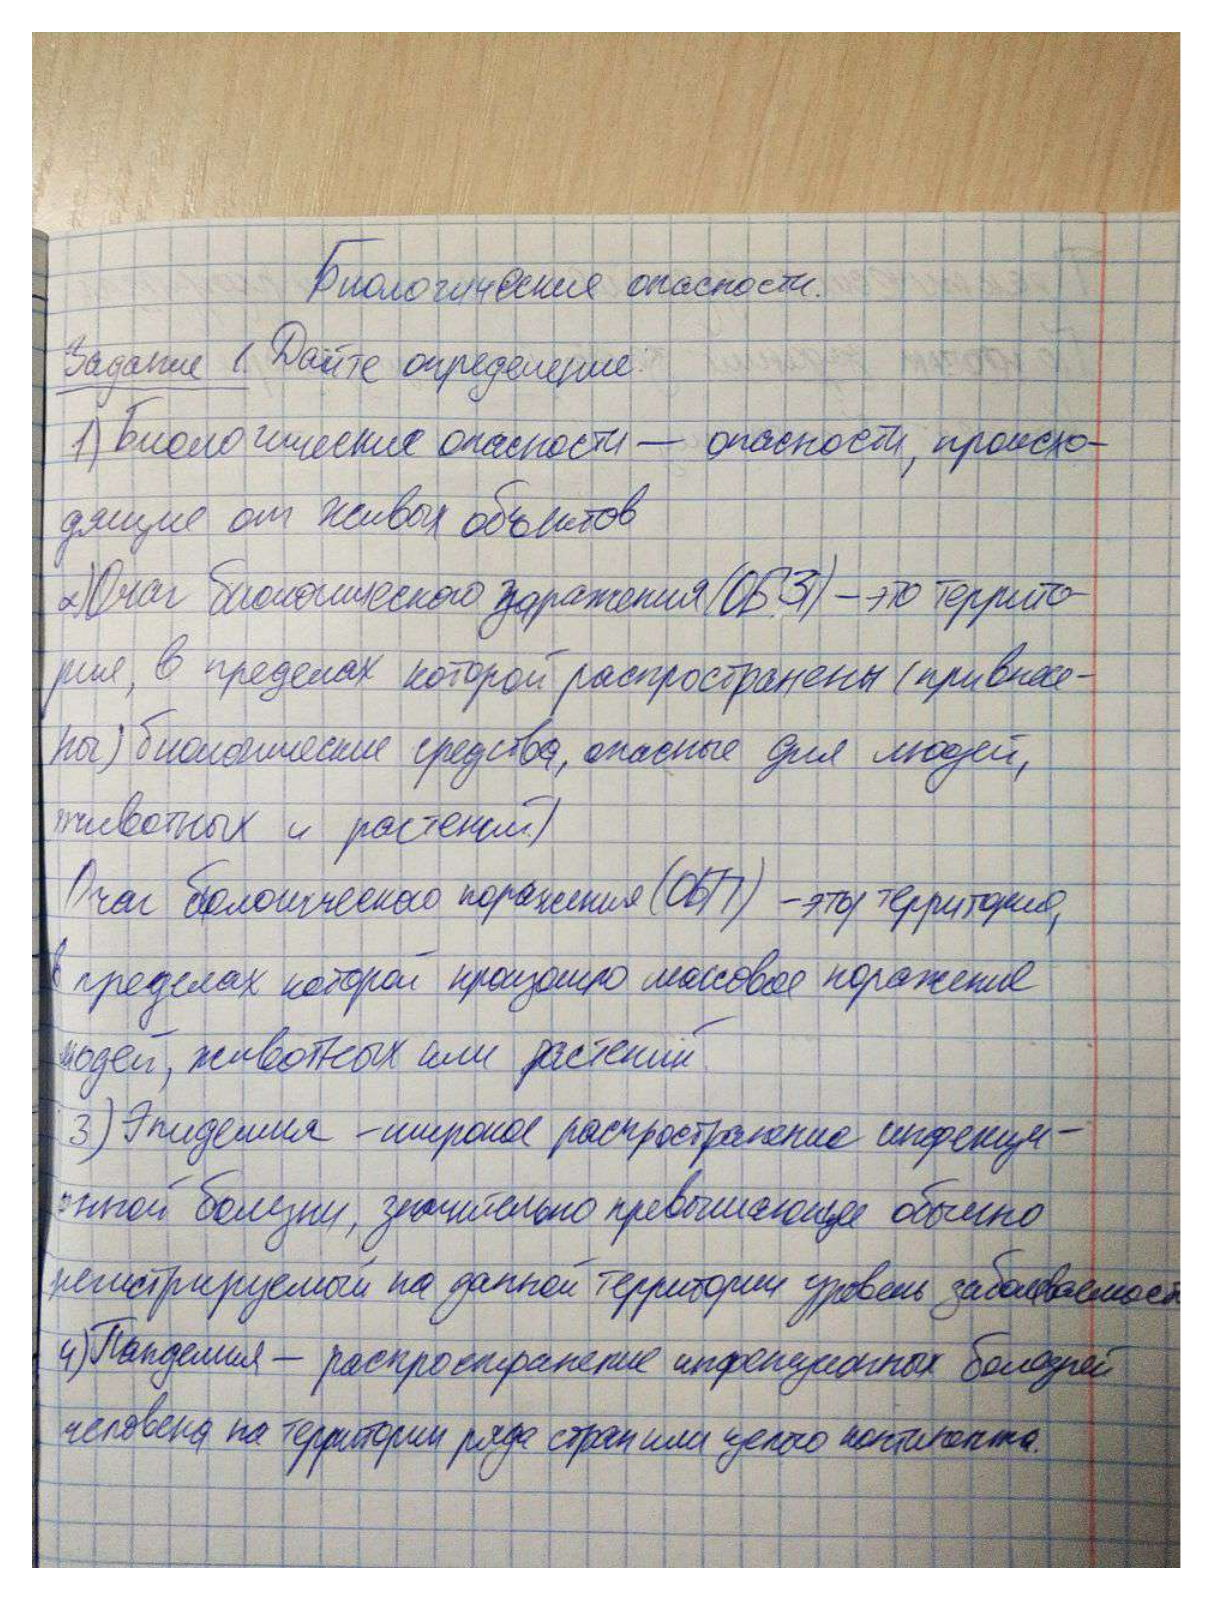 Биологические опасности.
Задание 1. Дайте определение:
1) Биологические опасности — опасности, происхо-
дящие от живых объектов
2) Очаг биологического заражения (ОБЗ) — это террито-
рия, в пределах которой распространены (привнесе-
ны) биологические средства, опасные для людей,
животных и растений)
Очаг биологического поражения (ОБП) - это территория,
в пределах которой произошло массовое поражение
людей, животных или растений.
3) Эпидемия - широкое распространение инфекци-
онной болезни, значительно превышающее обычно
регистрируемый на данной территории уровень заболеваемост
4) Пандемия — распространение инфекционных болезней
человека на территории ряда стран или целого континента.